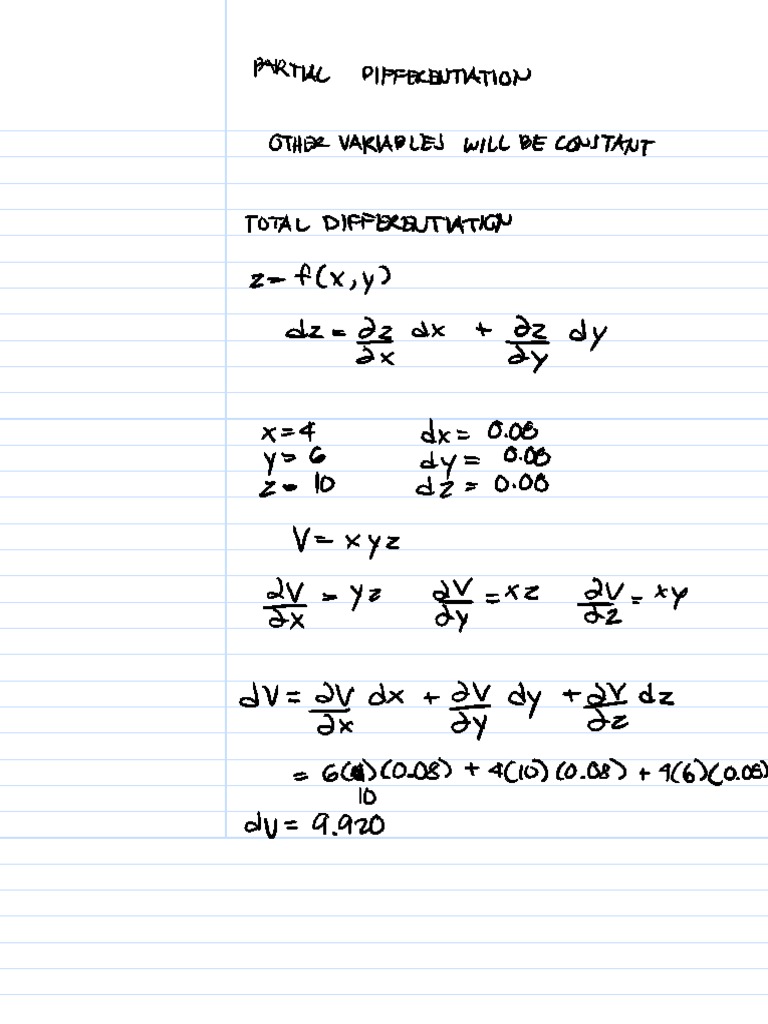 PARTIAL DIFFERENTIATION
OTHER VARIABLES WILL BE CONSTANT
TOTAL DIFFERENTIATION
z = f(x,y)
dz = ∂z/∂x dx + ∂z/∂y dy
x = 4 dx = 0.08
y = 6 dy = 0.08
z = 10 dz = 0.08
V = xyz
∂V/∂x = yz ∂V/∂y = xz ∂V/∂z = xy
dV = ∂V/∂x dx + ∂V/∂y dy + ∂V/∂z dz
= 6( )(0.08) + 4(10)(0.08) + 4(6)(0.08)
10
dV = 9.920